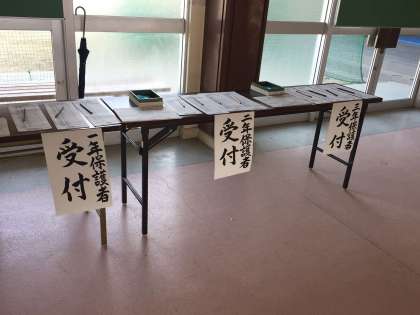 一年保護者
受付
二年保護者
受付
三年保護者
受付